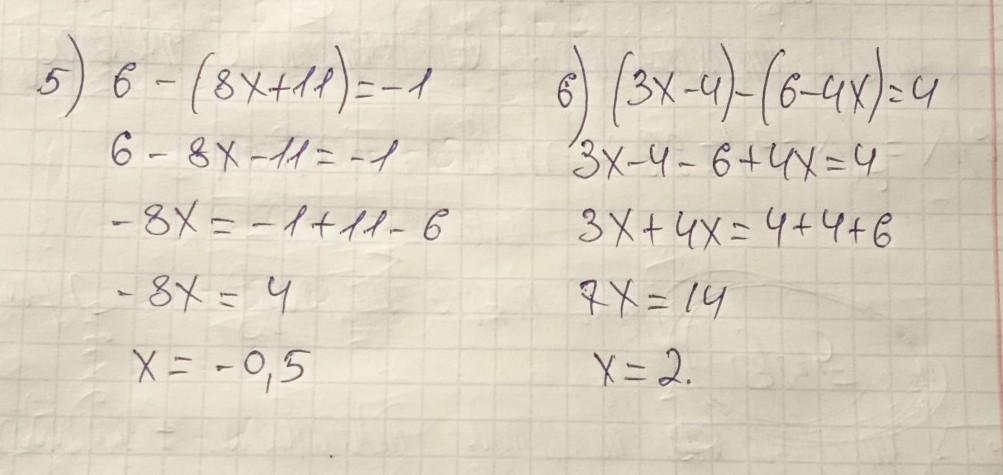 5) 6 - (8x+11) = -1
6 - 8x - 11 = -1
-8x = -1+11-6
-8x = 4
x = -0,5
6) (3x-4)-(6-4x)=4
3x-4-6+4x=4
3x+4x=4+4+6
7x=14
x=2.